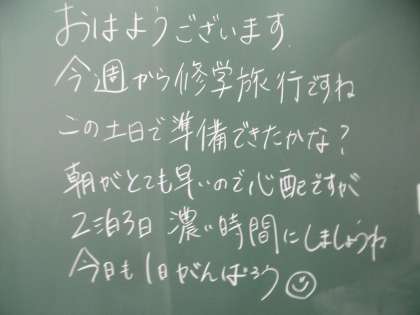 おはようございます.
今週から修学旅行ですね
この土日で準備できたかな?
朝がとても早いので心配ですが
2泊3日 濃い時間にしましょうね
今日も1日がんばろう